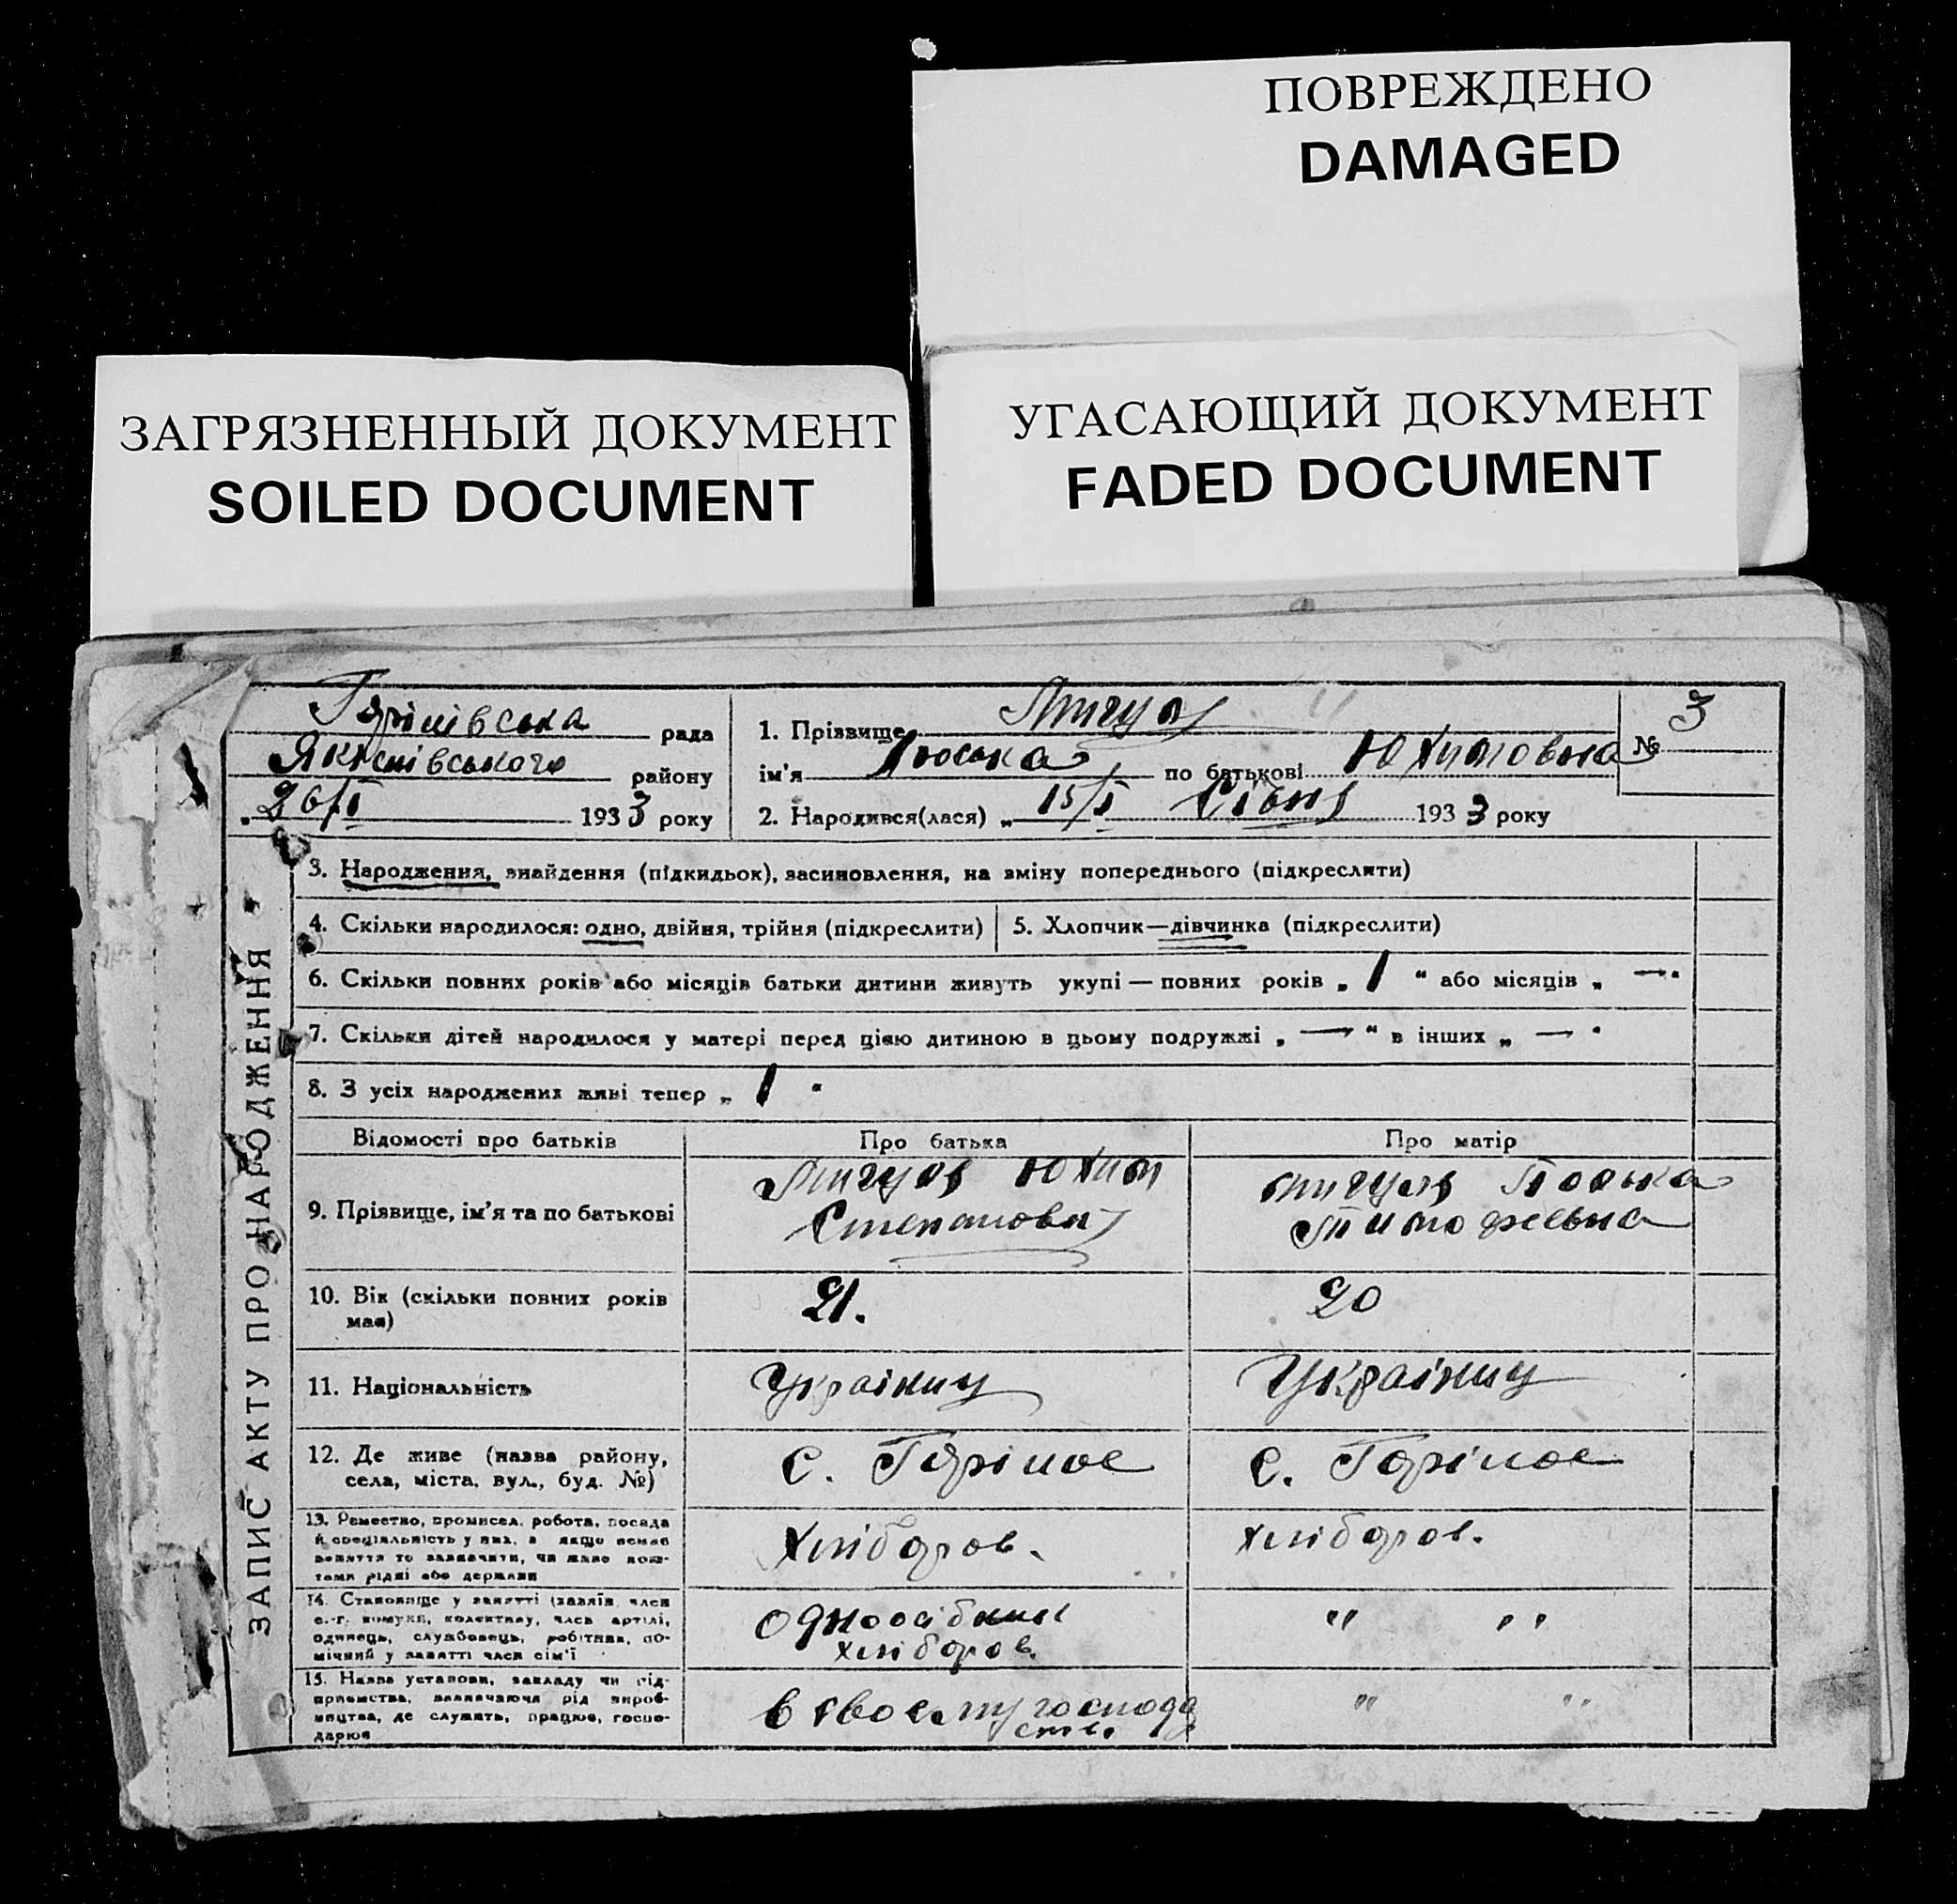 ПОВРЕЖДЕНО
DAMAGED
ЗАГРЯЗНЕННЫЙ ДОКУМЕНТ
SOILED DOCUMENT
УГАСАЮЩИЙ ДОКУМЕНТ
FADED DOCUMENT
рада
району
26/I 1933 року
1. Прізвище
ім'я по батькові Юхимовна
№ 3
2. Народився(лася) „ 15/I Січня 1933 року
ЗАПИС АКТУ ПРО НАРОДЖЕННЯ
3. Народження, знайдення (підкидьок), засиновлення, на зміну попереднього (підкреслити)
4. Скільки народилося: одно, двійня, трійня (підкреслити)
5. Хлопчик—дівчинка (підкреслити)
6. Скільки повних років або місяців батьки дитини живуть укупі — повних років „ 1 “ або місяців „ — “
7. Скільки дітей народилося у матері перед цією дитиною в цьому подружжі „ — “ в інших „ — “
8. З усіх народжених живі тепер „ 1 “
Відомості про батьків Про батька Про матір
9. Прізвище, ім'я та по батькові
Юхим
Степанович
Тимофеевна
10. Вік (скільки повних років має)
21. 20
11. Національність Українц Українц
12. Де живе (назва району,
села, міста, вул., буд. №)
с. с.
13. Ремество, промисел, робота, посада
й спеціальність у них, а якщо немає
заняття то зазначити, чи живе кош-
тами рідні або держави
Хлібороб. Хлібороб.
14. Становище у занятті (хазяїн, член
с.-г. комуни, колективу, член артілі,
одинець, службовець, робітник, по-
мічний у занятті член сім'ї
одноосібник
хлібороб.
" "
15. Назва установи, закладу чи під-
приємства, зазначаючи рід вироб-
ництва, де служить, працює, госпо-
дарює
в своему господа
ств.
" "